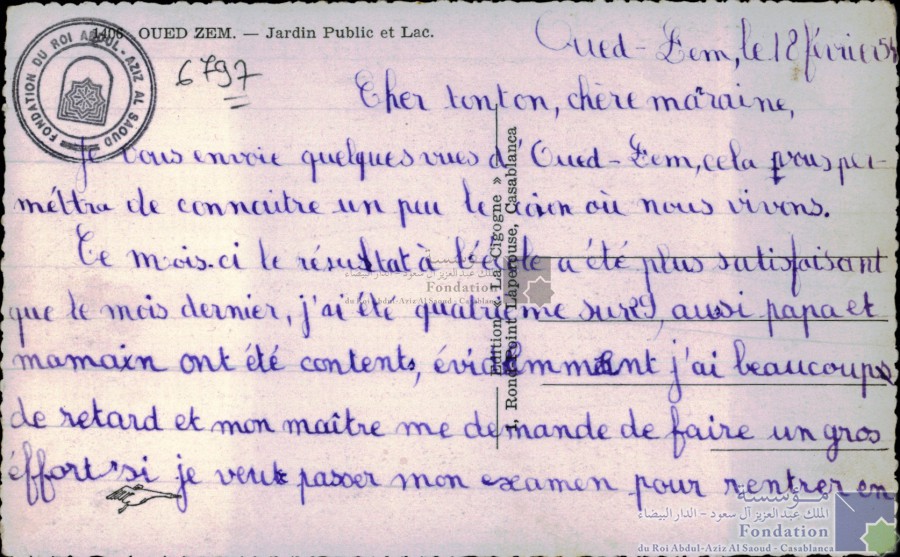 1406 OUED ZEM. — Jardin Public et Lac.
FONDATION DU ROI ABDUL-AZIZ AL SAOUD
6797
Oued-Zem, le 18 février 54
Cher tonton, chère marraine,
Je vous envoie quelques vues d'Oued-Zem, cela vous per-
méttra de connaitre un peu le coin où nous vivons.
Ce mois-ci le résultat à l'école a été plus satisfaisant
que le mois dernier, j'ai été quatrième sur 29, aussi papa et
mamain ont été contents, évidemment j'ai beaucoups
de retard et mon maître me demande de faire un gros
éffort si je veut passer mon examen pour rentrer en
Edition « La Cigogne »
Rond-Point Laperouse, Casablanca
مؤسسة
الملك عبد العزيز آل سعود - الدار البيضاء
Fondation
du Roi Abdul-Aziz Al Saoud - Casablanca
الملك عبد العزيز آل سعود - الدار البيضاء
Fondation
du Roi Abdul-Aziz Al Saoud - Casablanca